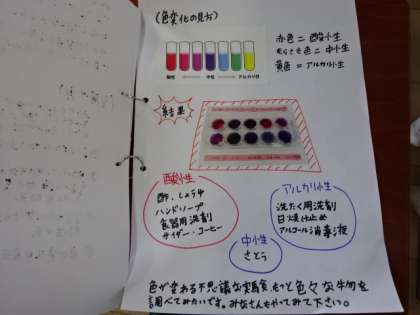 (色変化の見方)
赤色＝酸小生
むらさき色＝中小生
黄色＝アルカリ小生
酸性 中性 アルカリ性
結果
酸小生
酢．しょうゆ
ハンドソープ
食器用洗剤
サイダー・コーヒー
アルカリ小生
洗たく用洗剤
日焼け止め
アルコール消毒液
中小生
さとう
色が変わる不思議な実験、もっと色々な物を
調べてみたいです。みなさんもやってみて下さい。